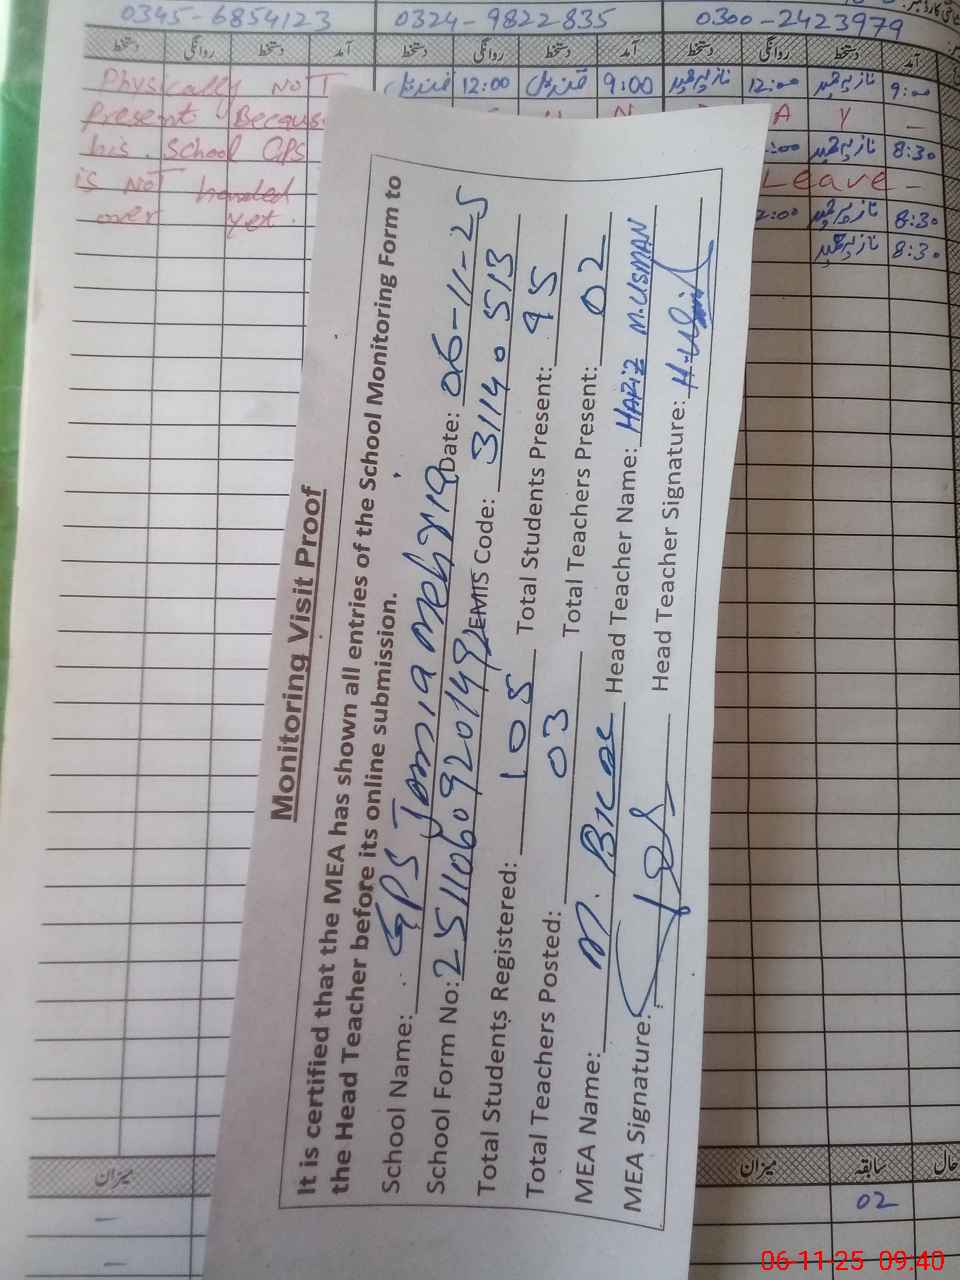 0345-6854123 0324-9822835 0300-2423979
دستخط روانگی دستخط آمد دستخط روانگی دستخط آمد دستخط روانگی دستخط آمد
Physically NOT 12:00 9:00 12:00 9:00
Present Because N A Y –
his School GPS :00 8:30
is NOT handed Leave –
over yet. 2:00 8:30
8:30
Monitoring Visit Proof
It is certified that the MEA has shown all entries of the School Monitoring Form to
the Head Teacher before its online submission.
School Name: GPS Jamia Mehria Date: 06-11-25
School Form No: 251106092014 EMIS Code: 31140513
Total Students Registered: 105 Total Students Present: 95
Total Teachers Posted: 03 Total Teachers Present: 02
MEA Name: M. BILAL Head Teacher Name: HAFIZ M.USMAN
MEA Signature: Head Teacher Signature:
میزان میزان سابقہ حال
02
06-11-25 09:40